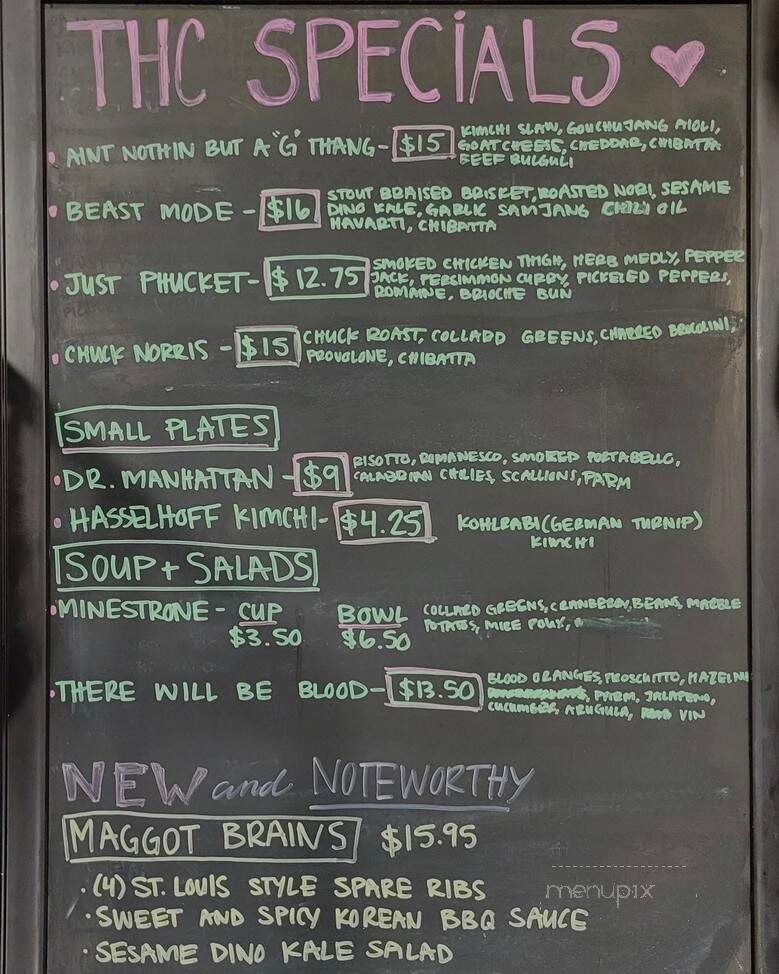 THC SPECIALS
AINT NOTHIN BUT A "G" THANG- $15 KIMCHI SLAW, GOUCHUJANG AIOLI,
GOAT CHEESE, CHEDDAR, CHIBATTA
BEEF BULGULI
BEAST MODE - $16 STOUT BRAISED BRISKET, ROASTED NORI, SESAME
DINO KALE, GARLIC SAMJANG CHILI OIL
HAVARTI, CHIBATTA
JUST PHUCKET- $12.75 SMOKED CHICKEN THIGH, HERB MEDLY, PEPPER
JACK, PERSIMMON CURRY, PICKELED PEPPERS,
ROMAINE, BRIOCHE BUN
CHUCK NORRIS - $15 CHUCK ROAST, COLLARD GREENS, CHARRED BROCOLINI,
PROVOLONE, CHIBATTA
SMALL PLATES
DR. MANHATTAN - $9 RISOTTO, ROMANESCO, SMOKED PORTABELLO,
CALABRIAN CHILIES, SCALLIONS, PARM
HASSELHOFF KIMCHI- $4.25 KOHLRABI (GERMAN TURNIP)
KIMCHI
SOUP + SALADS
MINESTRONE - CUP BOWL COLLARD GREENS, CRANBERRY BEANS, MARBLE
$3.50 $6.50 POTATOS, MIRE POUX,
THERE WILL BE BLOOD- $13.50 BLOOD ORANGES, PROSCUITTO, HAZELNU
PARM, JALAPENO,
CUCUMBER, ARUGULA, VIN
NEW and NOTEWORTHY
MAGGOT BRAINS $15.95
· (4) ST. LOUIS STYLE SPARE RIBS
· SWEET AND SPICY KOREAN BBQ SAUCE
· SESAME DINO KALE SALAD
menupix